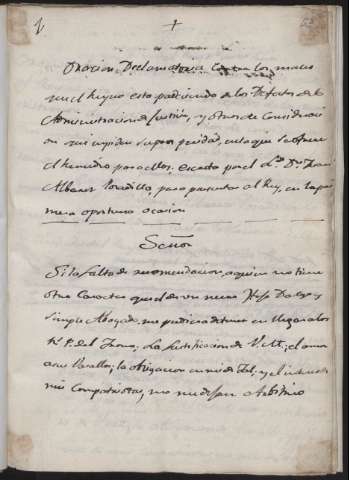 Oracion Declamatoria contra los males
en el Reyno esta padeciendo los Defectos de la
Administracion de Justicia, y otros de Consideraci
on que impiden su prosperidad, en la que se ofrece
el remedio para ellos, escrita por el Ldo. Dn.
Albares Posadilla, para presentar al Rey, en la pri
mera oportuna ocasion
Señor
Si la falta de recomendacion, a quien no tiene
otro Caracter que el de un mero Hijo Dalgo y
simple Abogado, me pudiera detener en llegar a los
R. P. del Trono; La Justificacion de V. M.; el amor
a sus Vasallos; la obligacion en mi de fiel; y el
mis Compatriotas, no me dejan Arbitrio